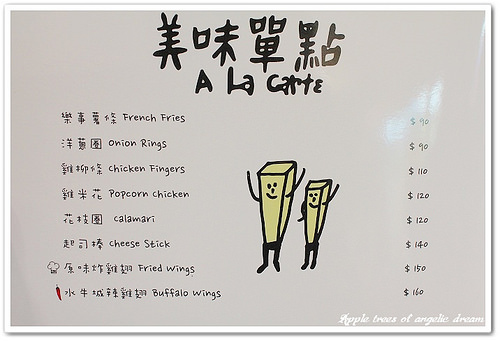 美味單點
A La Carte
樂事薯條 French Fries $90
洋蔥圈 Onion Rings $90
雞柳條 Chicken Fingers $110
雞米花 Popcorn Chicken $120
花枝圈 Calamari $120
起司棒 Cheese Stick $140
原味炸雞翅 Fried Wings $150
水牛城辣雞翅 Buffalo Wings $160
Apple trees of angelic dream